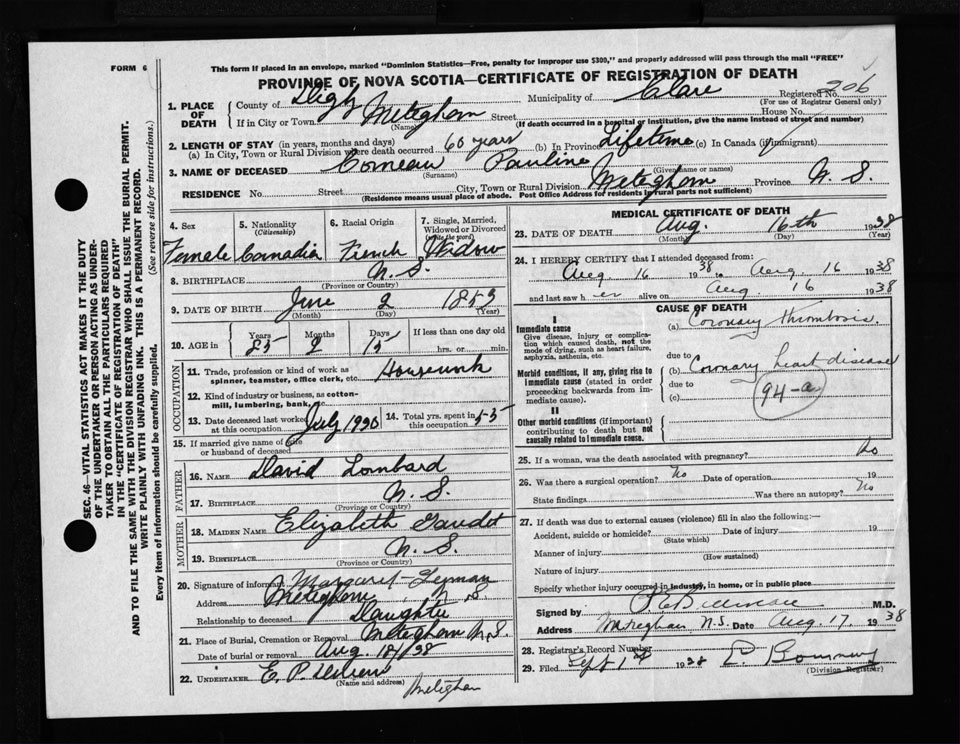 FORM 6
This form if placed in an envelope, marked "Dominion Statistics—Free, penalty for improper use $300," and properly addressed will pass through the mail "FREE"
PROVINCE OF NOVA SCOTIA—CERTIFICATE OF REGISTRATION OF DEATH
Registered No. 206
(For use of Registrar General only)
1. PLACE OF DEATH
County of Digby Municipality of Clare
If in City or Town Meteghan Street House No.
(Name) (If death occurred in a hospital or institution, give the name instead of street and number)
2. LENGTH OF STAY (in years, months and days)
(a) In City, Town or Rural Division where death occurred 60 years (b) In Province Lifetime (c) In Canada (if immigrant)
3. NAME OF DECEASED Comeau Pauline
(Surname) (Given name or names)
RESIDENCE No. Street City, Town or Rural Division Meteghan Province N. S.
(Residence means usual place of abode. Post Office Address for residents in rural parts not sufficient)
4. Sex Female
5. Nationality (Citizenship) Canadian
6. Racial Origin French
7. Single, Married, Widowed or Divorced (write the word) Widow
8. BIRTHPLACE N. S.
(Province or Country)
9. DATE OF BIRTH June 2 1853
(Month) (Day) (Year)
10. AGE in Years 85 Months 2 Days If less than one day old hrs. or min.
OCCUPATION
11. Trade, profession or kind of work as spinner, teamster, office clerk, etc. Housework
12. Kind of industry or business, as cotton-mill, lumbering, bank, etc.
13. Date deceased last worked at this occupation July
14. Total yrs. spent in this occupation 55
15. If married give name of wife or husband of deceased
FATHER
16. NAME David Lombard
17. BIRTHPLACE N. S.
(Province or Country)
MOTHER
18. MAIDEN NAME Elizabeth Gaudet
19. BIRTHPLACE N. S.
(Province or Country)
20. Signature of informant Margaret
Address Meteghan N. S
Relationship to deceased Daughter
21. Place of Burial, Cremation or Removal Meteghan N. S.
Date of burial or removal Aug. 18/38
22. UNDERTAKER E. P.
(Name and address)
Meteghan
MEDICAL CERTIFICATE OF DEATH
23. DATE OF DEATH Aug. 16th 1938
(Month) (Day) (Year)
24. I HEREBY CERTIFY that I attended deceased from:
Aug 16 1938 to Aug. 16 1938
and last saw her alive on Aug. 16 1938
CAUSE OF DEATH
I
Immediate cause
Give disease, injury or complication which caused death, not the mode of dying, such as heart failure, asphyxia, asthenia, etc.
(a) Coronary thrombosis.
due to
Morbid conditions, if any, giving rise to immediate cause (stated in order proceeding backwards from immediate cause).
(b) Coronary heart disease
due to
(c)
94-a
II
Other morbid conditions (if important) contributing to death but not causally related to immediate cause.
25. If a woman, was the death associated with pregnancy? No
26. Was there a surgical operation? No Date of operation 19
State findings Was there an autopsy? No
27. If death was due to external causes (violence) fill in also the following:—
Accident, suicide or homicide? Date of injury 19
(State which)
Manner of injury
(How sustained)
Nature of injury
Specify whether injury occurred in industry, in home, or in public place
Signed by M.D.
Address Meteghan N.S. Date Aug. 17. 1938
28. Registrar's Record Number
29. Filed Sept 1st 1938
(Division Registrar)
SEC. 46—VITAL STATISTICS ACT MAKES IT THE DUTY
OF THE UNDERTAKER OR PERSON ACTING AS UNDER-
TAKER TO OBTAIN ALL THE PARTICULARS REQUIRED
IN THE "CERTIFICATE OF REGISTRATION OF DEATH"
AND TO FILE THE SAME WITH THE DIVISION REGISTRAR WHO SHALL ISSUE THE BURIAL PERMIT.
WRITE PLAINLY WITH UNFADING INK. THIS IS A PERMANENT RECORD.
Every item of information should be carefully supplied. (See reverse side for instructions.)